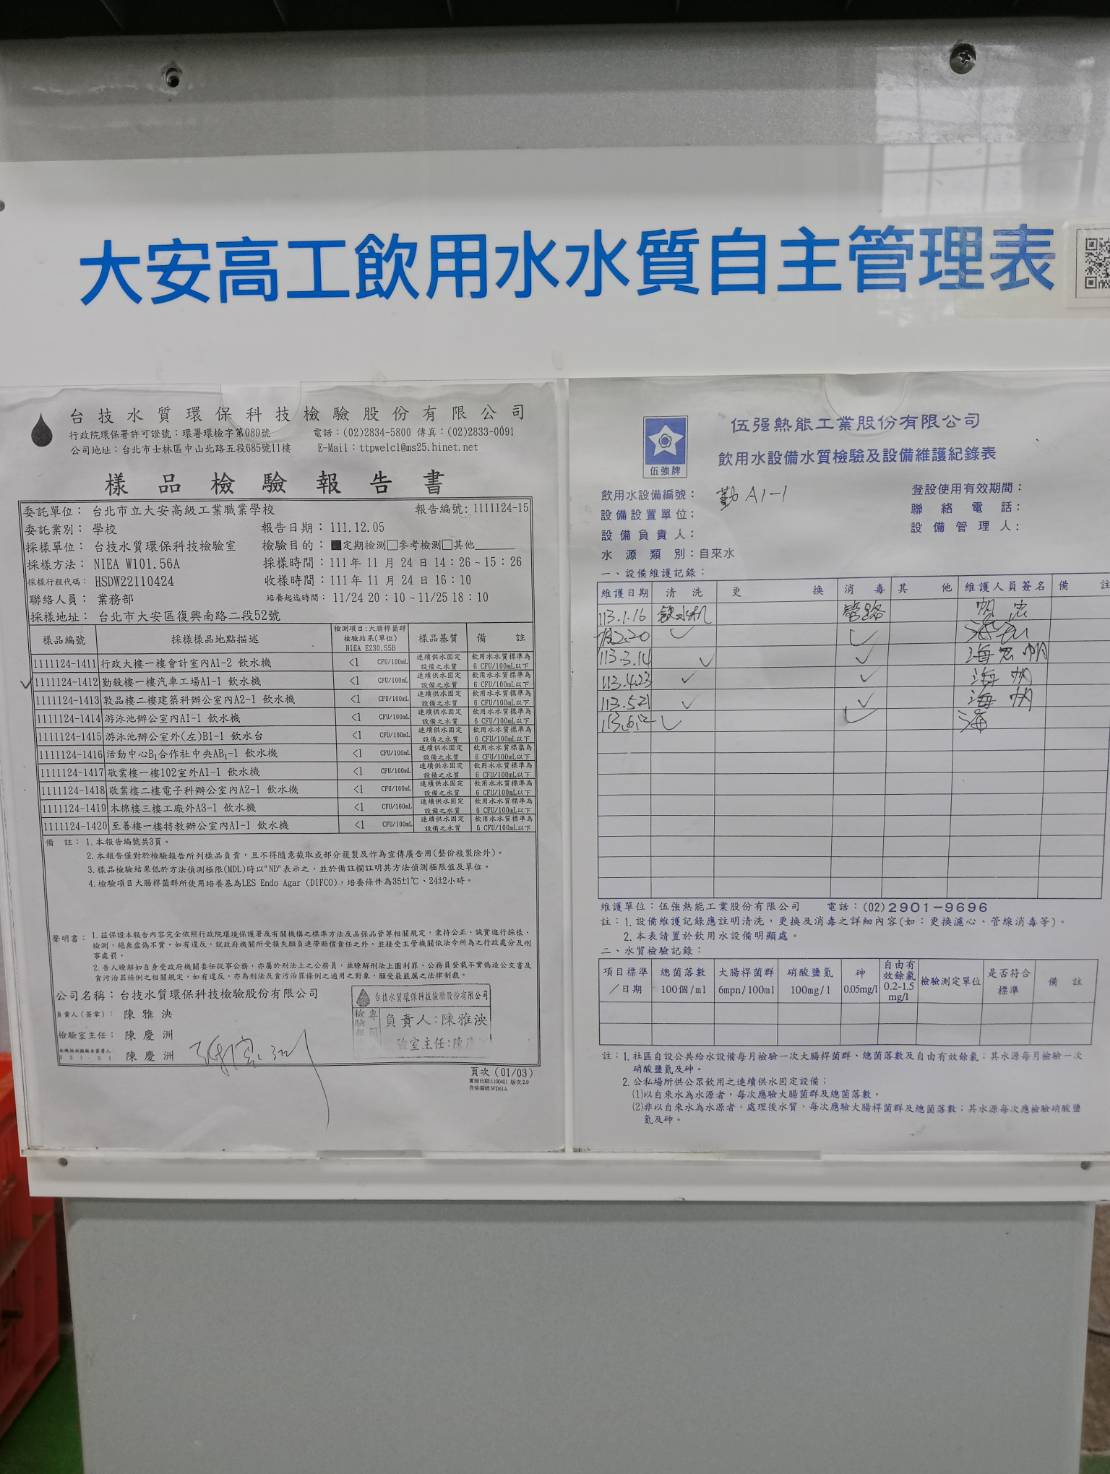 大安高工飲用水水質自主管理表
台技水質環保科技檢驗股份有限公司
行政院環保署許可證號：環署環檢字第080號 電話：(02)2834-5800 傳真：(02)2833-0091
公司地址：台北市士林區中山北路五段685號11樓 E-Mail：ttpwelcl@ms25.hinet.net
樣品檢驗報告書
委託單位：台北市立大安高級工業職業學校 報告編號：1111124-15
委託業別：學校 報告日期：111.12.05
採樣單位：台技水質環保科技檢驗室 檢驗目的：■定期檢測□參考檢測□其他
採樣方法：NIEA W101.56A 採樣時間：111年11月24日14：26~15：26
採樣行程代碼：HSDW22110424 收樣時間：111年11月24日16：10
聯絡人員：業務部 培養起迄時間：11/24 20：10~11/25 18：10
採樣地址：台北市大安區復興南路二段52號
樣品編號 採樣樣品地點描述 檢測項目：大腸桿菌群 檢驗結果(單位) NIEA E230.55B 樣品基質 備註
1111124-1411 行政大樓一樓會計室內A1-2 飲水機 <1 CFU/100mL 連續供水固定設備之水質 飲用水水質標準為6 CFU/100mL以下
1111124-1412 勤毅樓一樓汽車工場A1-1 飲水機 <1 CFU/100mL 連續供水固定設備之水質 飲用水水質標準為6 CFU/100mL以下
1111124-1413 敦品樓二樓建築科辦公室內A2-1 飲水機 <1 CFU/100mL 連續供水固定設備之水質 飲用水水質標準為6 CFU/100mL以下
1111124-1414 游泳池辦公室內A1-1 飲水機 <1 CFU/100mL 連續供水固定設備之水質 飲用水水質標準為6 CFU/100mL以下
1111124-1415 游泳池辦公室外(左)B1-1 飲水台 <1 CFU/100mL 連續供水固定設備之水質 飲用水水質標準為6 CFU/100mL以下
1111124-1416 活動中心B1合作社中央AB1-1 飲水機 <1 CFU/100mL 連續供水固定設備之水質 飲用水水質標準為6 CFU/100mL以下
1111124-1417 敬業樓一樓102室外A1-1 飲水機 <1 CFU/100mL 連續供水固定設備之水質 飲用水水質標準為6 CFU/100mL以下
1111124-1418 敬業樓二樓電子科辦公室內A2-1 飲水機 <1 CFU/100mL 連續供水固定設備之水質 飲用水水質標準為6 CFU/100mL以下
1111124-1419 木棉樓三樓工廠外A3-1 飲水機 <1 CFU/100mL 連續供水固定設備之水質 飲用水水質標準為6 CFU/100mL以下
1111124-1420 至善樓一樓特教辦公室內A1-1 飲水機 <1 CFU/100mL 連續供水固定設備之水質 飲用水水質標準為6 CFU/100mL以下
備註：1.本報告編號共3頁。
2.本報告僅對於檢驗報告所列樣品負責，且不得隨意截取或部分複製及作為宣傳廣告用(整份複製除外)。
3.樣品檢驗結果低於方法偵測極限(MDL)時以"ND"表示之，並於備註欄註明其方法偵測極限值及單位。
4.檢驗項目大腸桿菌群所使用培養基為LES Endo Agar (DIFCO)，培養條件為35±1℃、24±2小時。
聲明書：1.茲保證本報告內容完全依照行政院環境保護署及有關機構之標準方法及品保品管等相關規定，秉持公正、誠實進行採樣、
檢測，絕無虛偽不實，如有違反，就政府機關所受損失願負連帶賠償責任之外，並接受主管機關依法令所為之行政處分及刑
事處罰。
2.吾人瞭解如自身受政府機關委任從事公務，亦屬於刑法上之公務員，並瞭解刑法上圖利罪、公務員登載不實偽造公文書及
貪污治罪條例之相關規定，如有違反，亦為刑法及貪污治罪條例之適用之對象，願受最嚴厲之法律制裁。
公司名稱：台技水質環保科技檢驗股份有限公司
負責人(簽章)：陳雅泱
檢驗室主任：陳慶洲
陳慶洲
台技水質環保科技檢驗股份有限公司
負責人：陳雅泱
驗室主任：陳
頁次(01/03)
伍強牌
伍强熱能工業股份有限公司
飲用水設備水質檢驗及設備維護紀錄表
飲用水設備編號：勤A1-1 登設使用有效期間：
設備設置單位： 聯絡電話：
設備負責人： 設備管理人：
水源類別：自來水
一、設備維護記錄：
維護日期 清洗 更換 消毒 其他 維護人員簽名 備註
113.1.16 飲水机 管路
113.2.20 ✓ ✓
113.3.14 ✓ ✓
113.4.23 ✓ ✓ 海帆
113.5.21 ✓ ✓ 海帆
✓ ✓ 海
維護單位：伍強熱能工業股份有限公司 電話：(02)2901-9696
註：1.設備維護記錄應註明清洗，更換及消毒之詳細內容(如：更換濾心、管線消毒等)。
2.本表請置於飲用水設備明顯處。
二、水質檢驗記錄：
項目標準／日期 總菌落數100個/ml 大腸桿菌群6mpn/100ml 硝酸鹽氮100mg/1 砷0.05mg/1 自由有效餘氯0.2-1.5mg/1 檢驗測定單位 是否符合標準 備註
註：1.社區自設公共給水設備每月檢驗一次大腸桿菌群、總菌落數及自由有效餘氯；其水源每月檢驗一次
硝酸鹽氮及砷。
2.公私場所供公眾飲用之連續供水固定設備；
(1)以自來水為水源者，每次應驗大腸菌群及總菌落數。
(2)非以自來水為水源者，處理後水質，每次應驗大腸桿菌群及總菌落數；其水源每次應檢驗硝酸鹽
氮及砷。